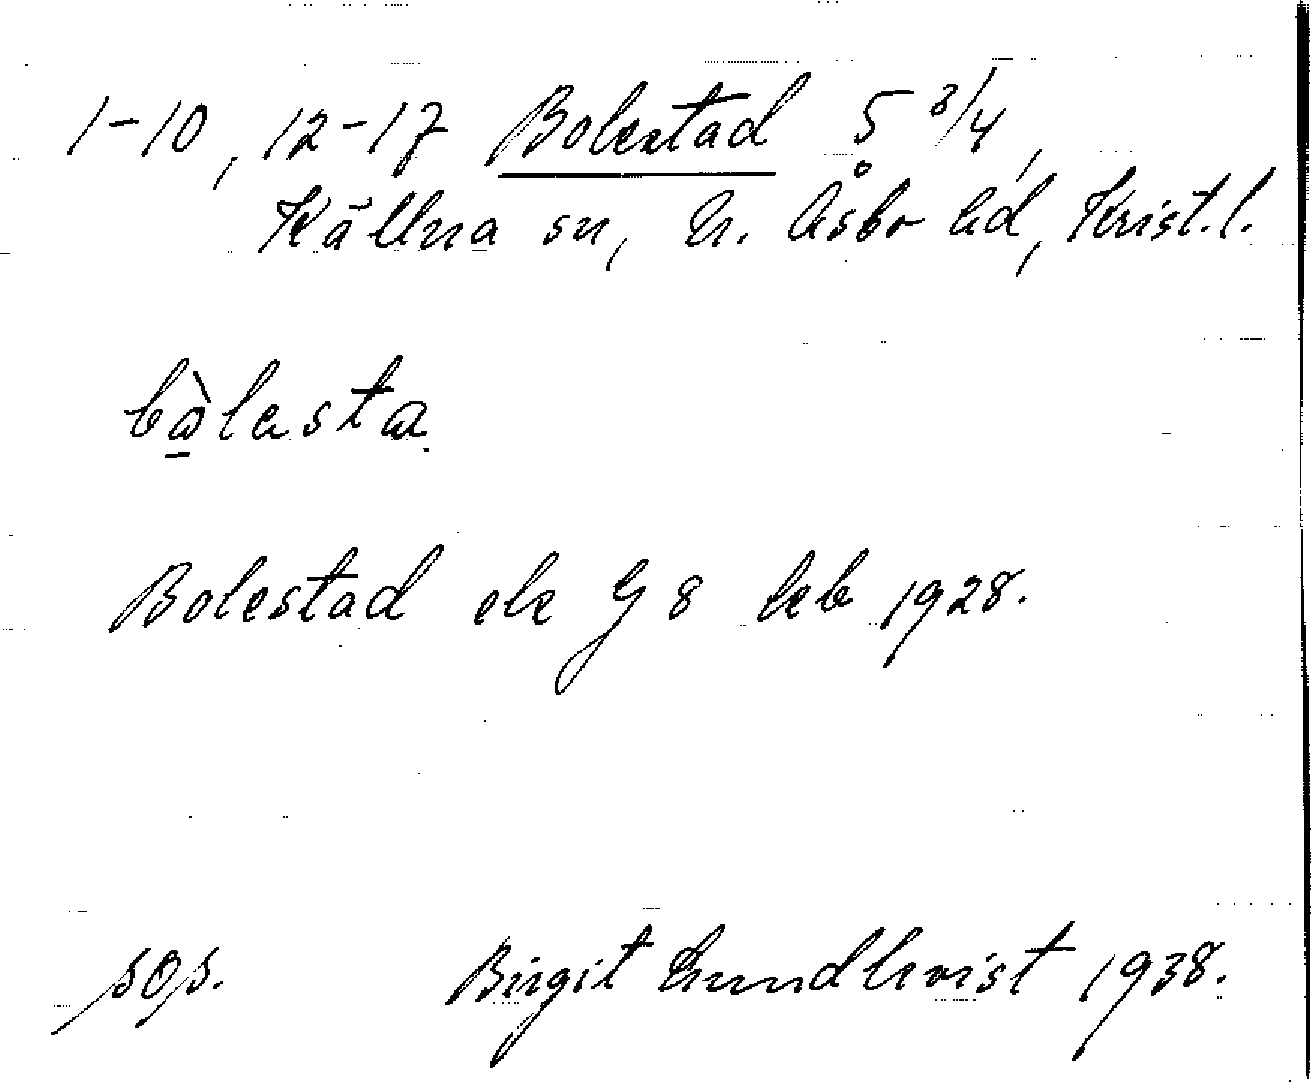 1-10, 12-17 Bolestad 5 3/4,
Källna sn, N. Åsbo hd, Krist.l.
bòlesta
Bolestad ek G 8 leb 1928.
sos. Birgit Lundkvist 1938.